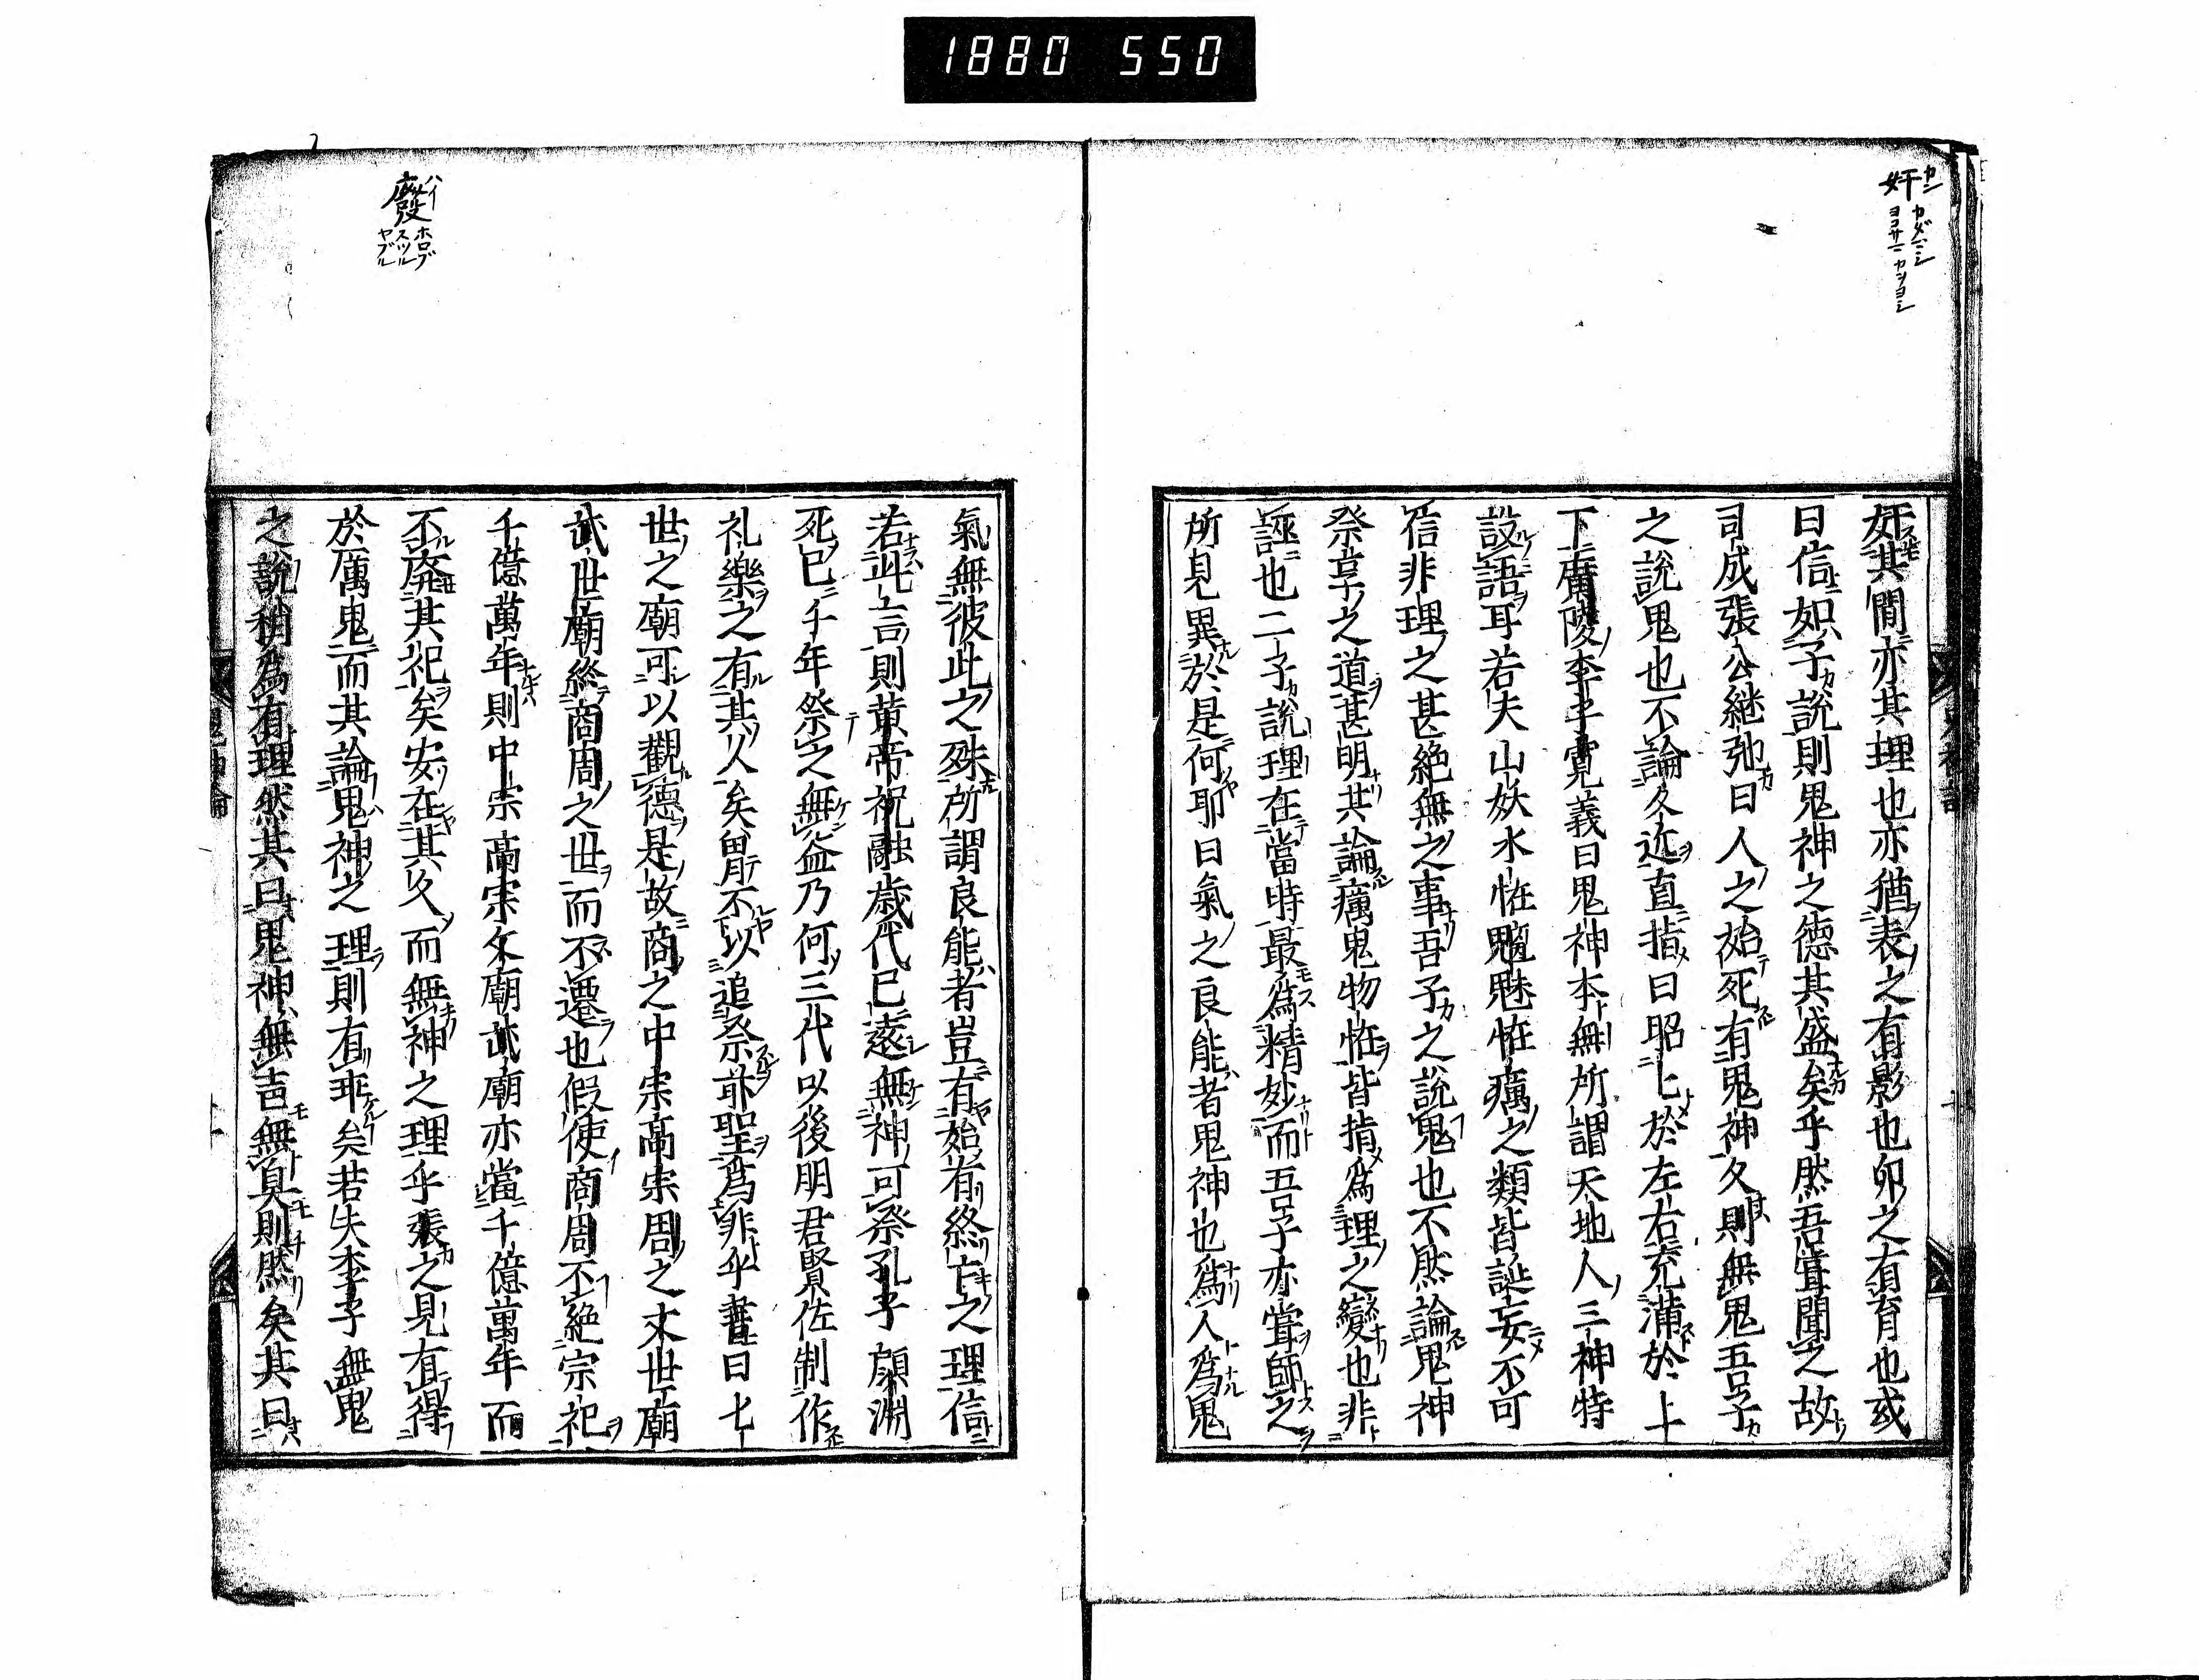 1880 550
奸 カン カダマシ
ヨコサマ カンヨシ
奸其間亦其理也亦猶表之有影也卵之有育也或
曰信如子說則鬼神之德其盛矣乎然吾嘗聞之故
司成張公継弛曰人之始死有鬼神久則無鬼吾子
之說鬼也不論久近直指曰昭々於左右充滿於上
下廣陵李子寛義曰鬼神本無所謂天地人三神特
設語耳若夫山妖水恠魍魅恠癘之類皆誕妄不可
信非理之甚絶無之事吾子之說鬼也不然論鬼神
祭享之道甚明其論癘鬼物恠皆指爲理之變也非
誣也二子說理在當時最爲精妙而吾子亦嘗師之
所見異於是何耶曰氣之良能者鬼神也爲人爲鬼
廢 ハイ ホロブ
スツル
ヤブル
氣無彼此之殊所謂良能者豈有始有終亡之理信
若此言則黄帝祝融歳代已遠無神可祭孔子顔淵
死已千年祭之無益乃何三代以後明君賢佐制作
礼樂之有其人矣胃不以追祭前聖爲非乎書曰七
世之廟可以觀德是故商之中宗高宗周之文世廟
武世廟終商周之世而不遷也假使商周不絶宗祀
千億萬年則中宗高宗文廟武廟亦當千億萬年而
不廃其祀矣安在其久而無神之理乎張之見有得
於厲鬼而其論鬼神之理則有乖矣若夫李子無鬼
之說稍爲有理然其曰鬼神無吉無臭則然矣其曰
鬼神論